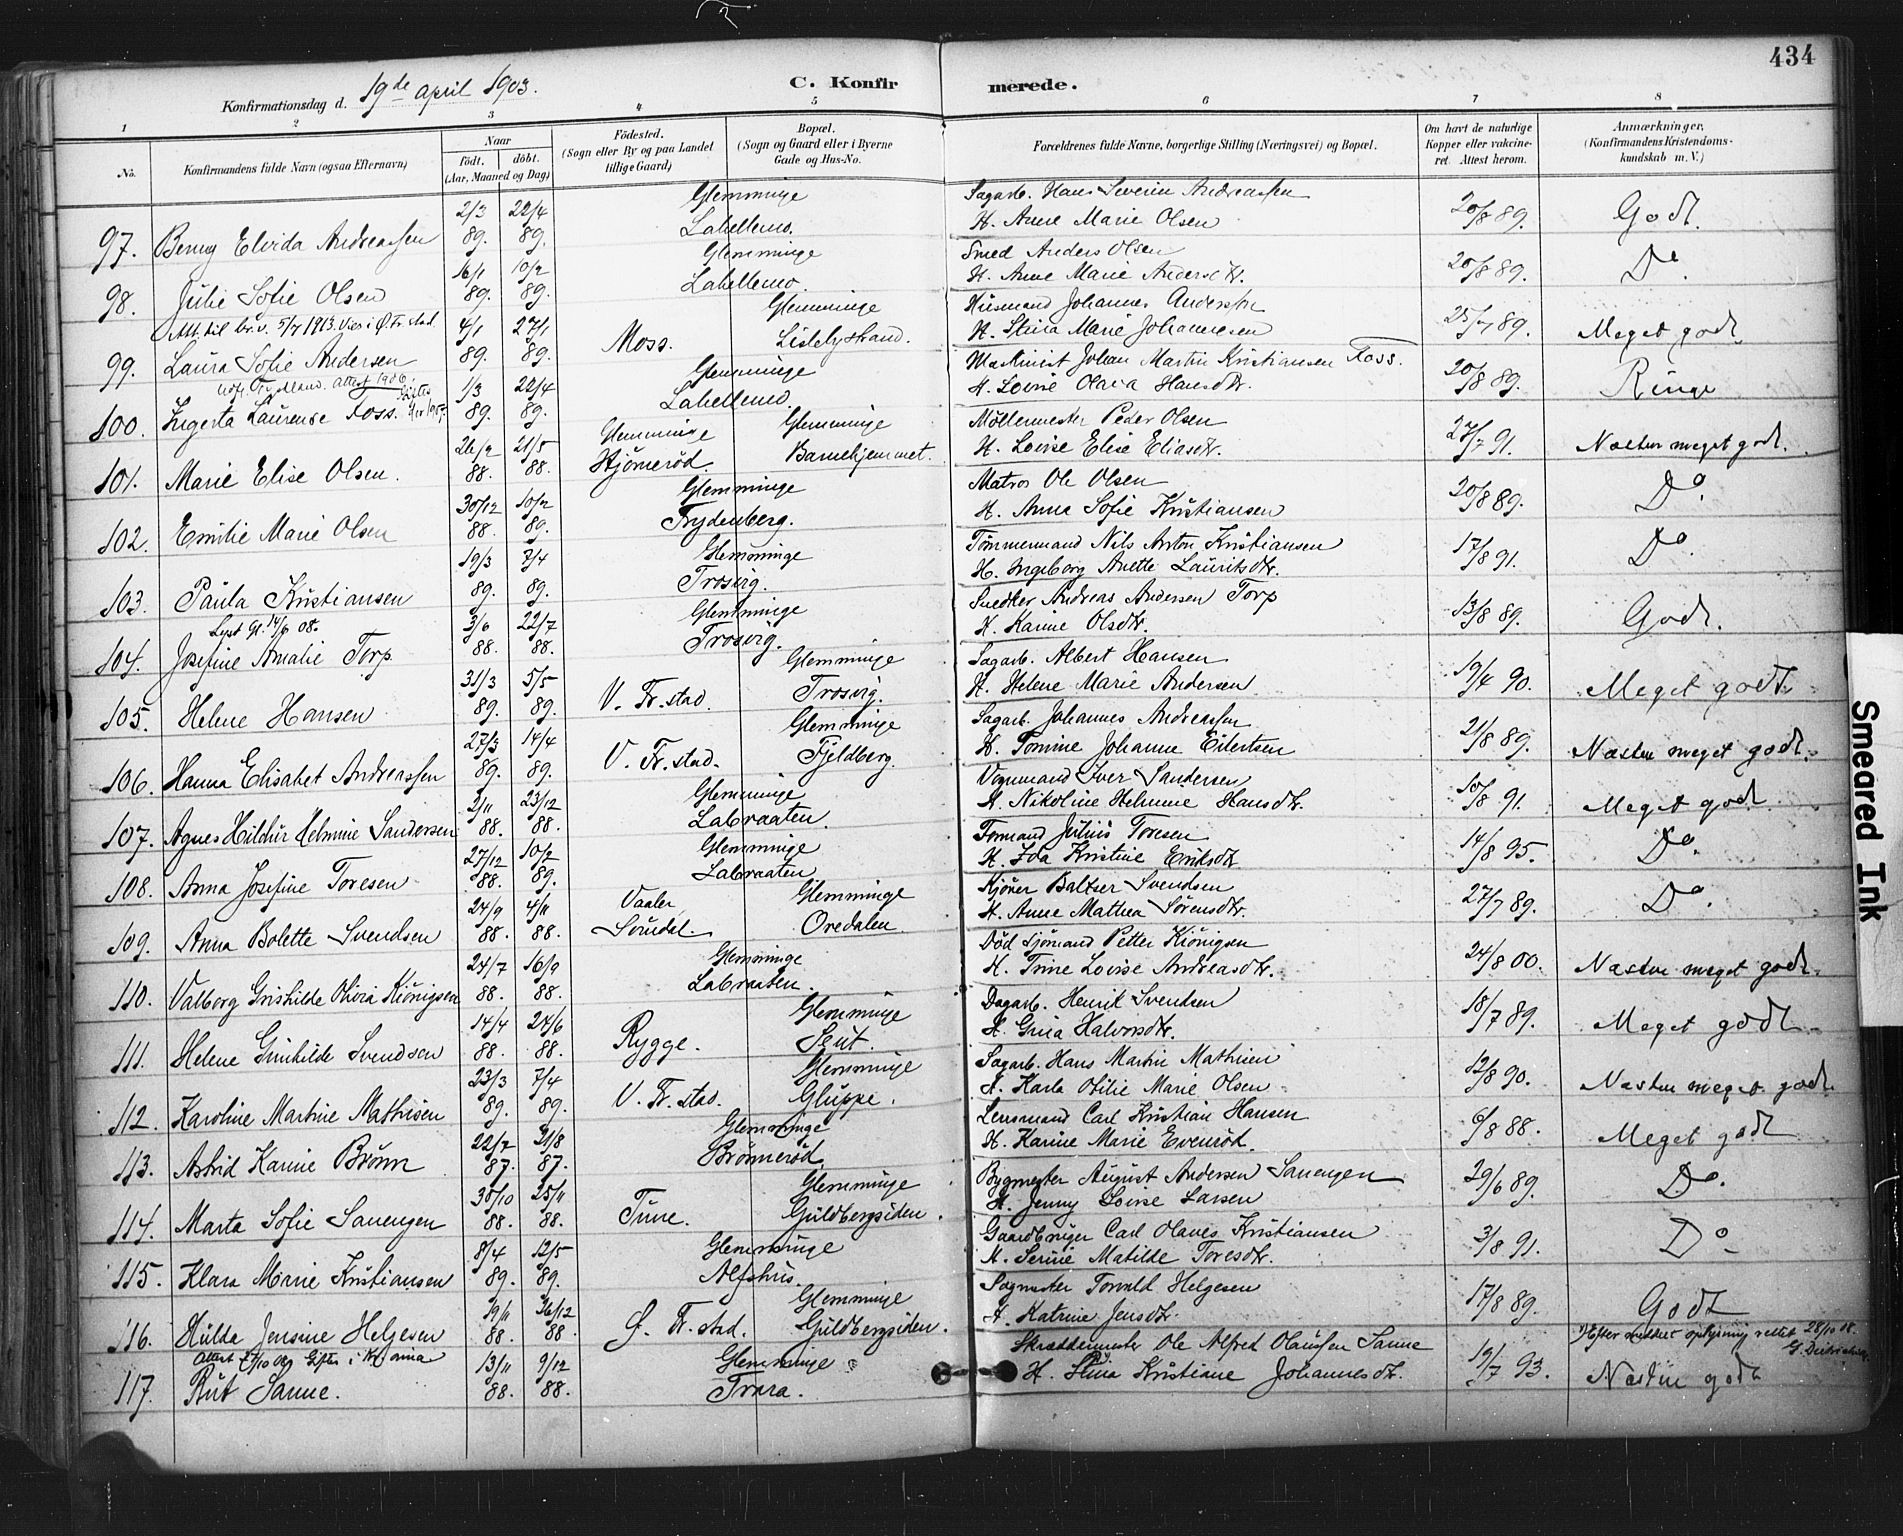 434
Konfirmationsdag d. 19de april 1903.
C. Konfirmerede.
1 2 3 4 5 6 7 8
No. Konfirmandens fulde Navn (ogsaa Efternavn) Naar födt. döbt. (Aar, Maaned og Dag) Födested. (Sogn eller By og paa Landet tillige Gaard) Bopæl. (Sogn og Gaard eller i Byerne Gade og Hus-No. Forældrenes fulde Navne, borgerlige Stilling (Næringsvei) og Bopæl. Om havt de naturlige Kopper eller vakcineret. Attest herom. Anmærkninger. (Konfirmandens Kristendomskundskab m. V.)
2/3 22/4 Glemminge Sagarb. Hans Severin Andreassen
97. Benny Elvida Andreassen 89. 89. Labellemo. H. Anne Marie Olsen 20/8 89. Godt.
16/1 10/2 Glemminge Smed Anders Olsen
98. Julie Sofie Olsen 89. 89. Labellemo. H. Anne Marie Andersdtr. 20/8 89. Do.
Att. til br. v. 5/7 1913. Vies i Ø. Fr.stad.
4/1 27/1 Glemminge Husmand Johannes Anderssen
99. Laura Sofie Andersen 89. 89. Moss. Lislebystrand. H. Stina Marie Johannesen 25/7 89. Meget godt
Attest 1906. Giftes
1/3 22/4 Glemminge Maskinist Johan Martin Kristiansen Foss.
100. Ingerta Laurense Foss. 89. 89. Labellemo. H. Lovise Olava Hansdtr. 20/8 89. Ringe
26/2 21/5 Glemminge Glemminge Møllemester Peder Olsen
101. Marie Elise Olsen. 88. 88. Hjörneröd. Barnehjemmet. H. Lovise Elise Eliasdtr. 27/7 91. Næsten meget godt.
30/12 10/2 Glemminge Matros Ole Olsen
102. Emilie Marie Olsen 88. 89. Frydenberg. H. Anna Sofie Kristiansen 20/8 89. Do.
19/3 7/4 Glemminge Tømmermand Nils Anton Kristiansen
103. Paula Kristiansen 89. 89. Trosvig. H. Ingeborg Anette Lauritsdtr. 17/8 91. Do.
Lyst Gl. 14/6 08.
3/6 22/7 Glemminge Snedker Andreas Andersen Torp
104. Josefine Amalie Torp. 88. 88. Trosvig. H. Karine Olsdtr. 13/8 89. Godt.
31/3 5/5 Glemminge Sagarb. Albert Hansen
105. Helene Hansen 89. 89. V. Fr.stad. Trosvig. H. Helene Marie Andersen 19/4 90. Meget godt
27/3 14/4 Glemminge Sagarb. Johannes Andreassen
106. Hanna Elisabet Andreassen 89. 89. V. Fr.stad. Fjeldberg. H. Tomine Johanne Eilertsen 21/8 89. Næsten meget godt.
2/11 23/12 Glemminge Vognmand Iver Sandersen
107. Agnes Hildur Helmine Sandersen 88. 88. Labraaten. H. Nikoline Helmine Hansdtr. 10/8 91. Meget godt.
27/12 10/2 Glemminge Formand Julius Toresen
108. Anna Josefine Toresen 88. 89. Labraaten H. Ida Kristine Eriksdtr 14/8 95. Do.
24/9 4/11 Vaaler Glemminge Kjører Baltser Svendsen
109. Anna Bolette Svendsen 88. 88. Sömdal. Oredalen. H. Anne Mathea Sörensdtr. 27/7 89. Do.
24/7 16/9 Glemminge Död Sjömand Petter Kiönigsen
110. Valborg Grishilde Olivia Kiönigsen 88. 88. Labraaten. H. Trine Lovise Andreasdtr. 24/8 00. Næsten meget godt.
14/4 24/6 Glemminge Dagarb. Henrik Svendsen
111. Helene Gunhilde Svendsen 88. 88. Rygge. Seut. H. Grina Halvorsdtr. 18/7 89. Meget godt.
23/3 7/4 Glemminge Sagarb. Hans Martin Mathisen
112. Karoline Martine Mathisen 89. 89. V. Fr.stad. Gluppe. H. Karla Otilie Marie Olsen 12/8 90. Næsten meget godt.
22/7 21/8 Glemminge Lensmand Carl Kristian Hansen
113. Astrid Karine Brönn 87. 87. Brönneröd. H. Karine Marie Evenröd 6/8 88. Meget godt
30/10 25/11 Glemminge Bygmester August Andersen Sanengen
114. Marta Sofie Sanengen 88. 88. Tune. Guldbergsiden. H. Jenny Lovise Larsen 29/6 89. Do.
8/4 12/5 Glemminge Gaardbruger Carl Olaves Kristiansen
115. Klara Marie Kristiansen 89. 89. Alfshus. H. Serine Matilde Toresdtr. 3/8 91. Do.
19/11 26/12 Glemminge Sagmester Torvald Helgesen
116. Hulda Jensine Helgesen 88. 88. Ø. Fr.stad. Guldbergsiden. H. Katrine Jensdtr. 17/8 89. Godt
Attest 27/10 08 Giftes i Kr.ania 1) Efter meddelt oplysning rettet 28/10 08.
13/11 9/12 Glemminge Skræddermester Ole Alfred Olaussen Sanne
117. Rut Sanne. 88. 88. Trara. H. Stina Kristiane Johannesdtr. 19/7 93. Næsten godt
Smeared Ink